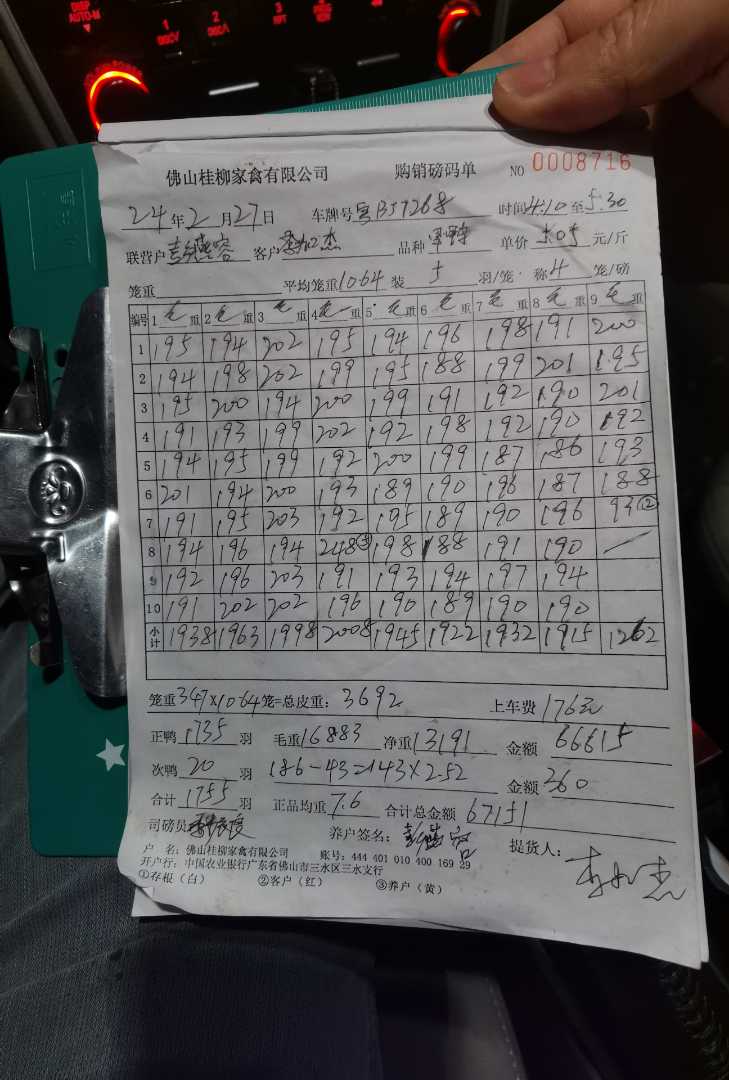 DISP
AUTO-M
1
2
3
DISC∨
DISC∧
RPT
佛山桂柳家禽有限公司 购销磅码单 NO 0008716
24年2月27日 车牌号粤B57268 时间4:10至5:30
联营户 客户 杰 品种 单价5.05元/斤
笼重 平均笼重1064装5羽/笼·称4笼/磅
编号 1毛重 2毛重 3毛重 4毛重 5毛重 6毛重 7毛重 8毛重 9毛重
1 195 194 202 195 194 196 198 191 200
2 194 198 202 199 195 188 199 201 195
3 195 200 194 200 199 191 192 190 201
4 191 193 199 202 192 198 192 190 192
5 194 195 199 192 200 199 187 186 193
6 201 194 200 193 189 190 196 187 188
7 191 195 203 192 195 189 190 196 93②
8 194 196 194 248⑤ 198 188 191 190 —
9 192 196 203 191 193 194 197 194
10 191 202 202 196 190 189 190 190
小计 1938 1963 1998 2008 1945 1922 1932 1915 1262
笼重347×1064笼=总皮重:3692 上车费176元
正鸭1735羽 毛重16883 净重13191 金额66615
次鸭20羽 186-43=143×2.52 金额360
合计1755羽 正品均重7.6 合计总金额67151
司磅员 养户签名: 提货人:
户 名:佛山桂柳家禽有限公司 账号:444 401 010 400 169 29
开户行:中国农业银行广东省佛山市三水区三水支行
①存根(白) ②客户(红) ③养户(黄)